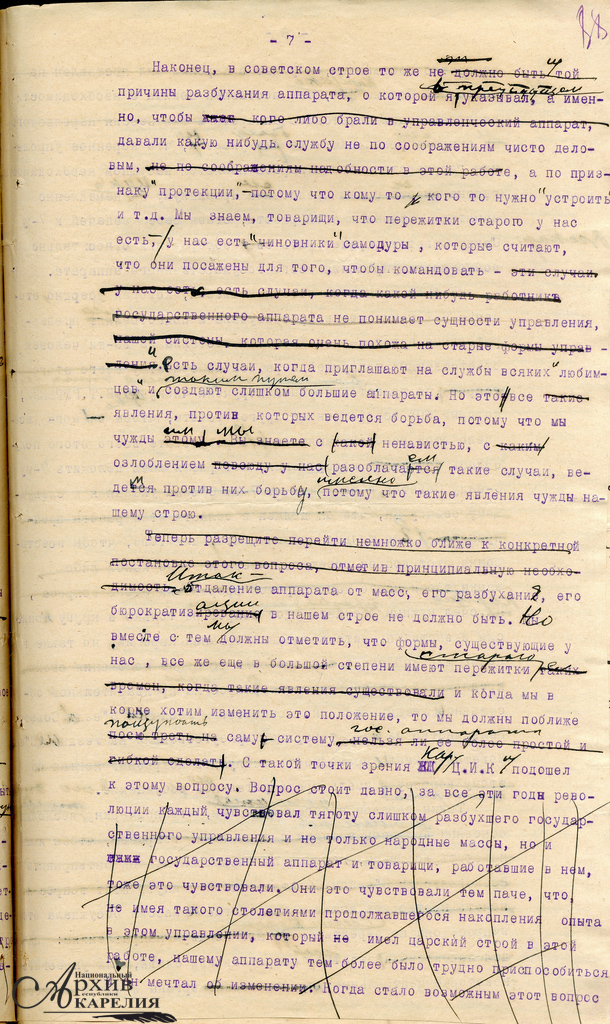 - 7 -
Наконец, в советском строе то же не должно быть и той
в третьих
причины разбухания аппарата, о которой я указывал, а имен-
но, чтобы кого либо брали в управленческий аппарат,
давали какую нибудь службу не по соображениям чисто дело-
вым, не по соображениям надобности в этой работе, а по приз-
наку "протекции,"-потому что кому то кого то нужно "устроить"
и т.д. Мы знаем, товарищи, что пережитки старого у нас
есть,- у нас есть "чиновники" самодуры, которые считают,
что они посажены для того, чтобы командовать - эти случаи
у нас есть, есть случаи, когда какой нибудь работник
государственного аппарата не понимает сущности управления,
нашей системы, которая очень похожа на старые формы управ -
ления. И есть случаи, когда приглашают на службы всяких "любим-
таким путем
цев" и создают слишком большие аппараты. Но это все такие
явления, против которых ведется борьба, потому что мы
им мы
чужды этому. Вы знаете с какой ненавистью, с каким
ем
озлоблением повсюду у нас разоблачаются такие случаи, ве-
именно
дется против них борьбу, потому что такие явления чужды на-
шему строю.
Теперь разрешите перейти немножко ближе к конкретной
постановке этого вопроса, отметив принципиальную необхо-
Итак -
димость. отдаление аппарата от масс, его разбухания, его
ации
бюрократизирования в нашем строе не должно быть. Но
мы
вместе с тем должны отметить, что формы, существующие у
старого
нас , все же еще в большой степени имеют пережитки таких
времен, когда такие явления существовали и когда мы в
корне хотим изменить это положение, то мы должны поближе
гос. аппарата
посмотреть на саму систему, нельзя ли ее более простой и
Кар
гибкой сделать. С такой точки зрения Ц.И.К. и подошел
к этому вопросу. Вопрос стоит давно, за все эти годы рево-
люции каждый чувствовал тяготу слишком разбухшего государ-
ственного управления и не только народные массы, но и
государственный аппарат и товарищи, работавшие в нем,
тоже это чувствовали. Они это чувствовали тем паче, что,
не имея такого столетиями продолжавшегося накопления опыта
в этом управлении, который не имел царский строй в этой
работе, нашему аппарату тем более было трудно приспособиться
он мечтал об изменении. Когда стало возможным этот вопрос
Национальный
Архив
Республики
Карелия